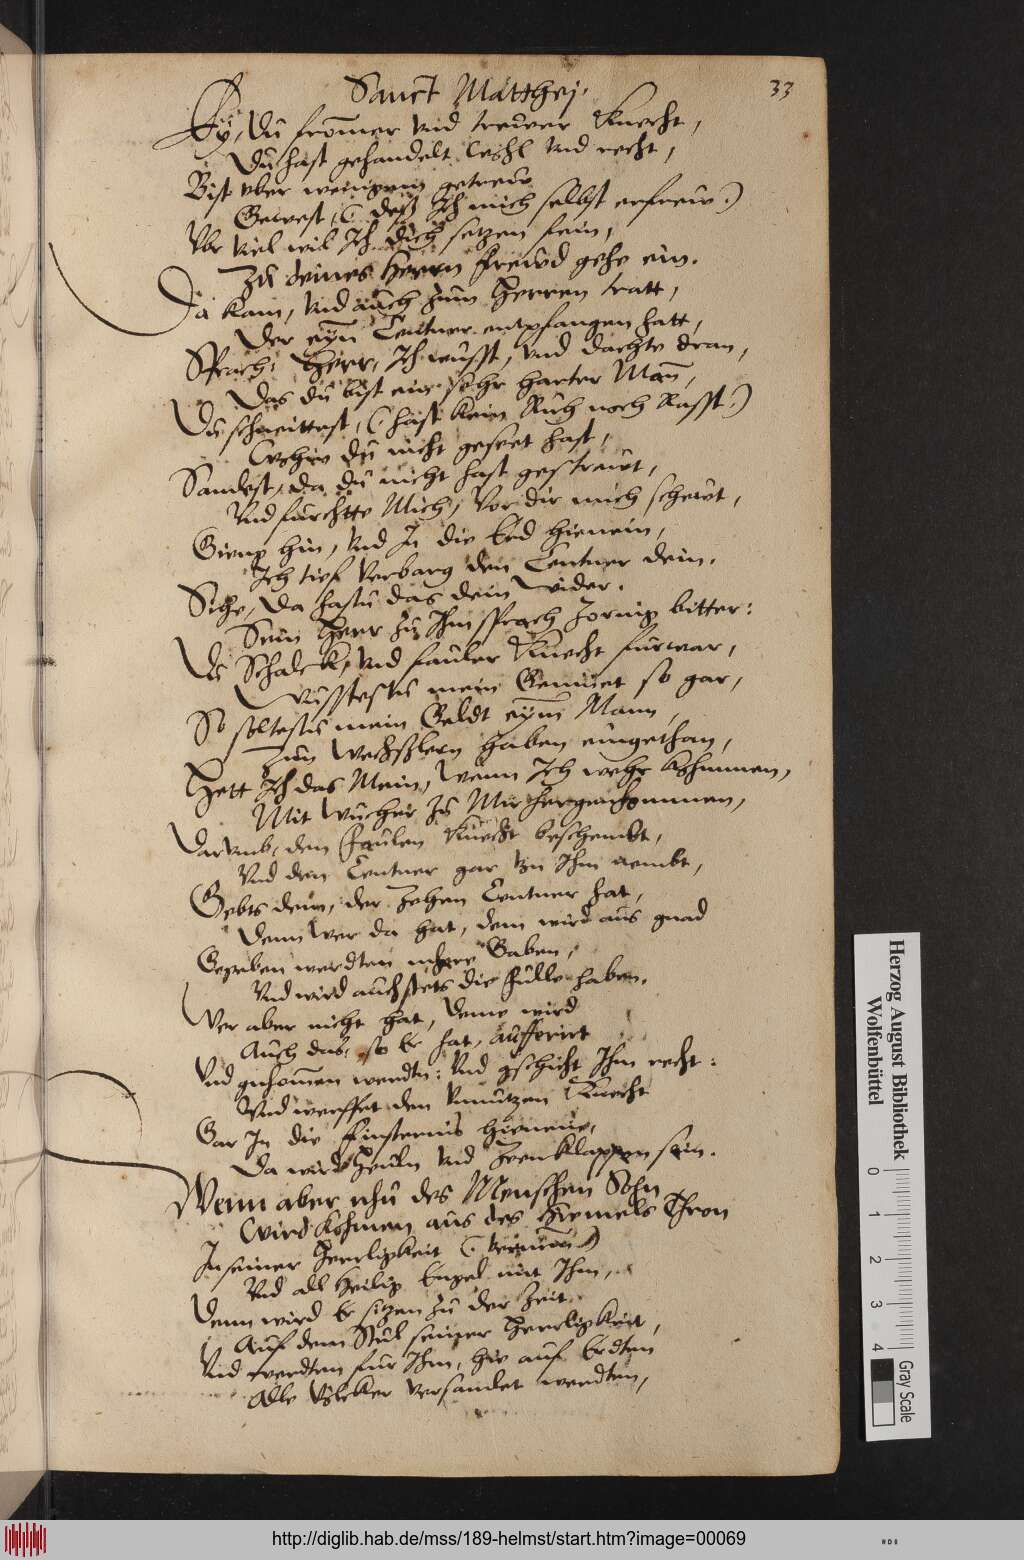 Sanct Matthej.
33
Ey, du frommer vnd trewer Knecht,
Du hast gehandelt wohl vnd recht,
Bist vber wenigem getrew
Gewest, (. deß Ich mich selbst erfrew .)
Vbr viel wil Ich dich setzen fein,
Zu deines Herrn Freud gehe ein.
Da kam, vnd auch zum Herren tratt,
Der eyn Centner entpfangen hatt,
Sprach: Herr, Ich wusst, vnd dachte dran,
Das du bist ein sehr harter Mann,
Du schneittest, (. hast kein Ruh noch Rasst .)
Wohin du nicht geseet hast,
Samlest, da du nicht hast gestreut,
Vnd furchtte Mich, Vor dir mich scheut,
Gieng hin, vnd In die Erd hienein,
Ich tief verbarg den Centner dein.
Sihe, da hastu das dein wider.
Sein Herr zu Ihm sprach zornig bitter:
Du Schalck, vnd fauler Knecht furwar,
Wusstestu mein Gemuet so gar,
So soltestu mein Geldt eym Mann
Zun Wechßlern haben eingethan,
Hett Ich das Mein, Wenn Ich wehr kohmmen,
Mit Wucher zu Mir hergenommen,
Darumb, dem faulen Knecht
Vnd den Centner gar von Ihm nembt,
Gebts dem, der Zehen Centner hat,
Denn Wer da hat, dem wird aus gnad
Gegeben werdten mhere Gaben,
Vnd wird auch stets die Fülle haben.
Wer aber nicht hat, deme wird
Auch das, so Er hat,
Vnd gnhommen werdtn: Vnd gschicht Ihm recht:
Vnd werffet den Vnnutzen Knecht
Gar In die Finsternis hienein,
Da wird Heuln vnd Zeenklappen sein.
Wenn aber nhu des Menschen Sohn
Wird kohmen aus des Hiemels Thron
In seiner Herrligkeit
Vnd all Heilig Engel mit Ihm,
Denn wird Er sitzen zu der Zeit
Auf dem Stul seiner Herrligkeit,
Vnd werdten fur Ihm, hie auf Erdten
Alle Völcker versamlet werdten,
Herzog August Bibliothek
Wolfenbüttel
0 1 2 3 4
Gray Scale
http://diglib.hab.de/mss/189-helmst/start.htm?image=00069